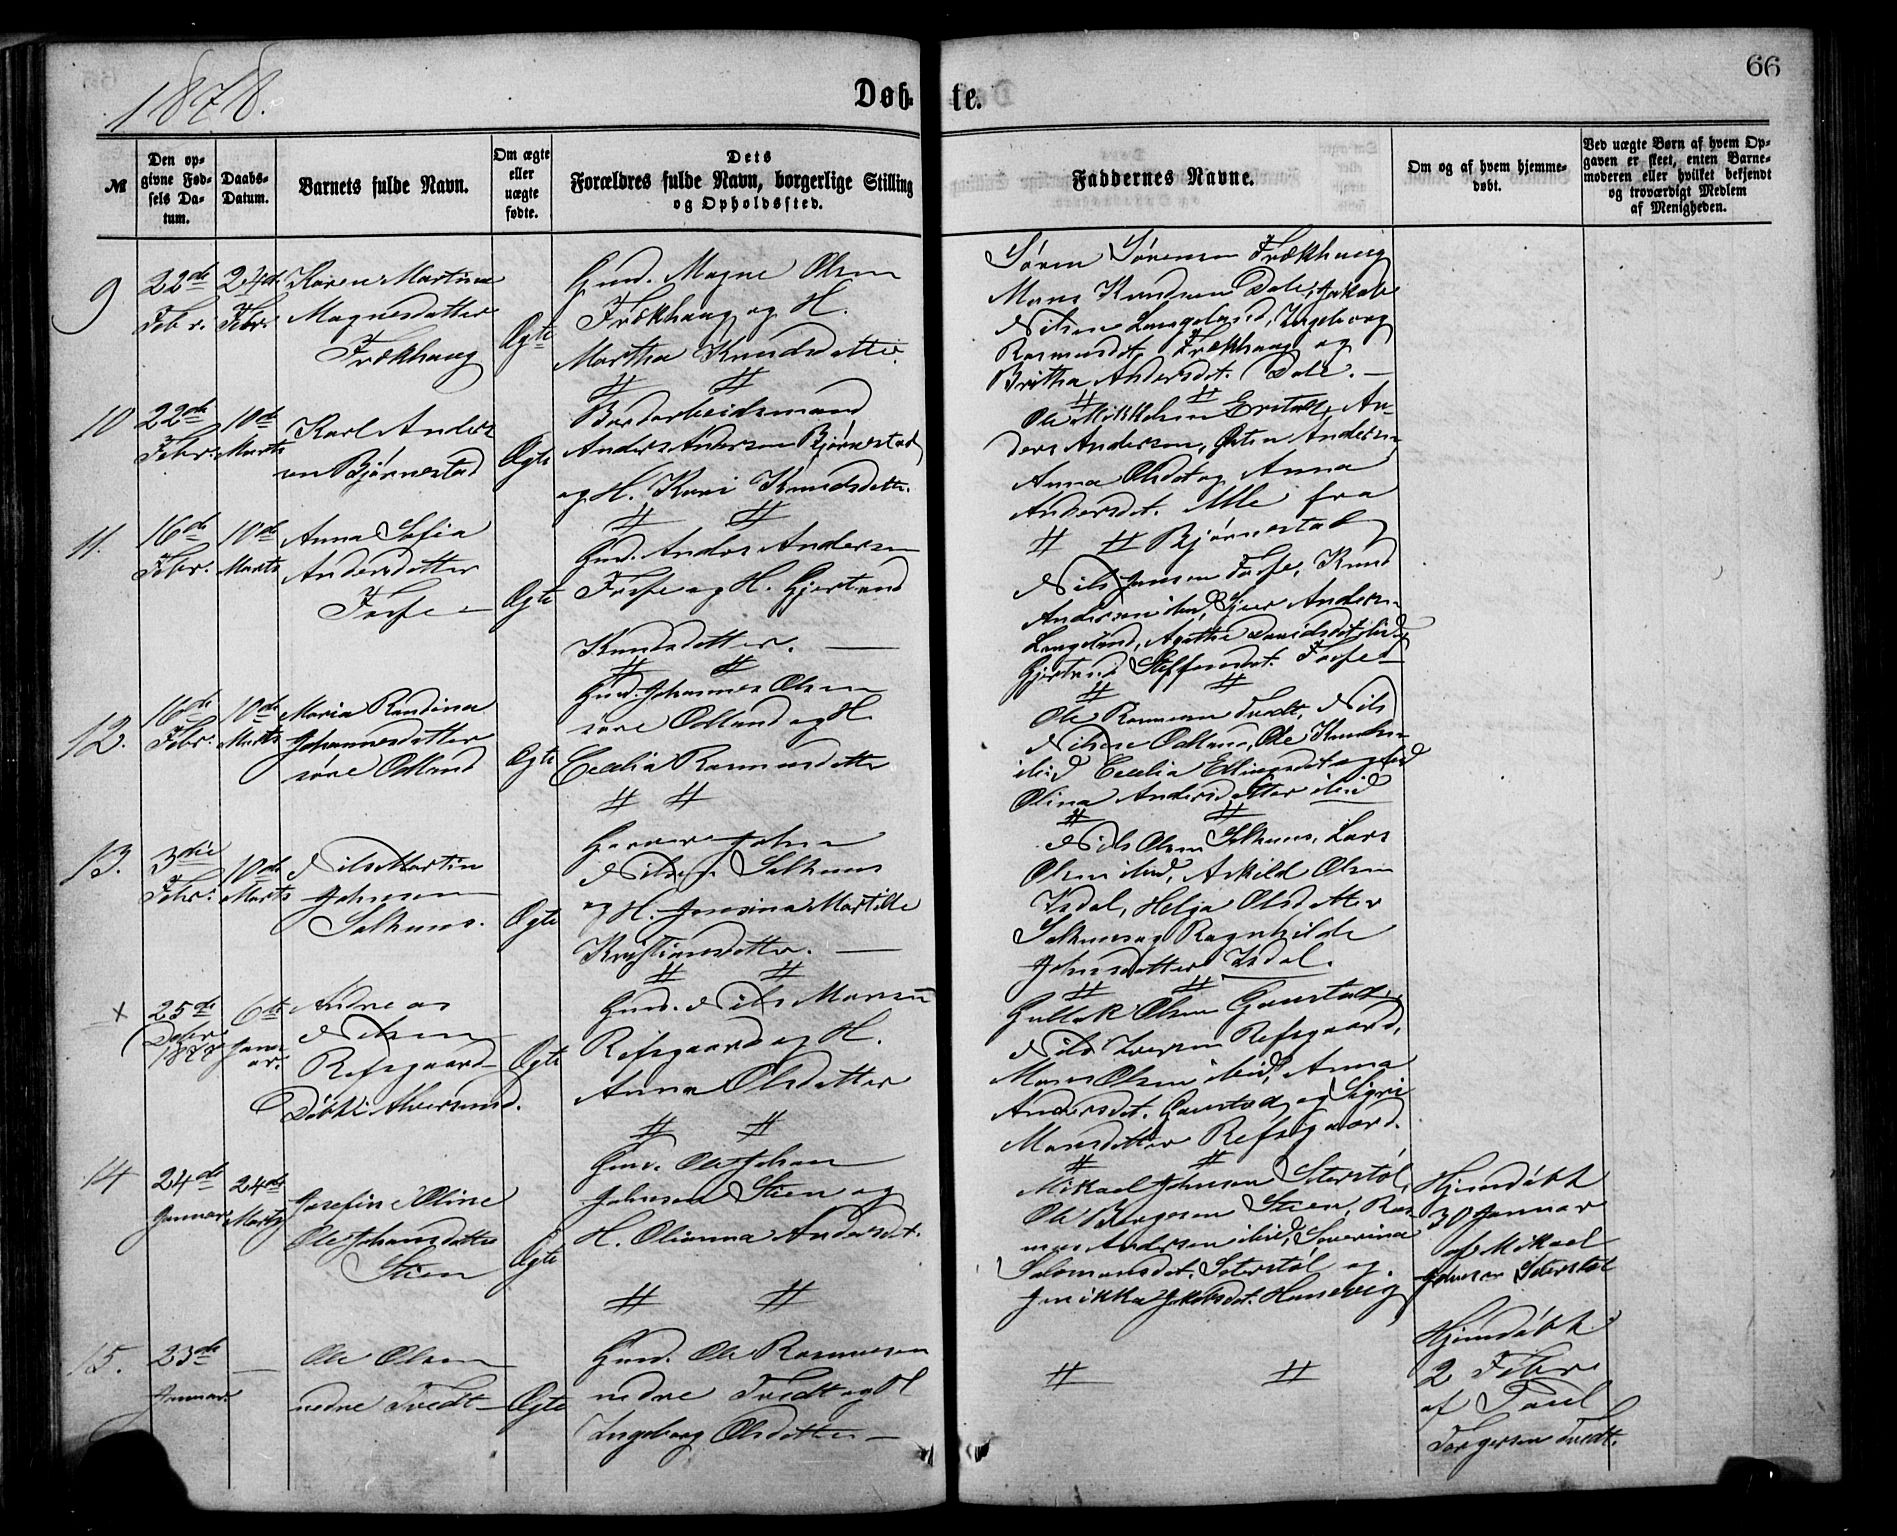 1878.
Døb-
te.
66
№
Den op-
givne Fød-
sels Da-
tum.
Daabs-
Datum.
Barnets fulde Navn.
Om ægte
eller
uægte
fødte.
Dets
Forældres fulde Navn, borgerlige Stilling
og Opholdssted.
Faddernes Navne.
Om og af hvem hjemme-
døbt.
Ved uægte Børn af hvem Op-
gaven er skeet, enten Barne-
moderen eller hvilket bekjendt
og troværdigt Medlem
af Menigheden.
9
22de
Febr.
24de
Febr
Karen Martina
Magnesdatter
Frækhaug
Ægte
Gmd. Magne Olsen
Frækhaug og H.
Martha Knudsdatter.
Søren Sørensen Frækhaug
Mons Knudsen Dale, Jakob
Nilsen Langeland, Ingeborg
Rasmusdt. Frækhaug og
Britha Andersdt. Dale. —
10
22de
Febr.
10de
Marts
Karl Anders
en Bjørnestad
Ægte
Bordarbeidsmand
Anders Andersen Bjørnestad
og H. Kari Knudsdatter.
Ole Mikkelsen Erstad, An-
ders Andersen, Andersen,
Anna Olsdt og Anna
Andersdt. Alle fra
Bjørnestad
11.
16de
Febr.
10de
Marts
Anna Sofia
Andersdatter
Fosse —
Ægte
Gmd. Anders Andersen
Fosse og H. Gjertrud
Knudsdatter. —
Nils Jansen Fosse, Knud
Andersen ibid, Andersen
Langeland, Agathe Davidsdt ibid
Gjertrud Steffensdt. Fosse
12.
16de
Febr.
10de
Marts
Maria Randina
Johannesdatter
søre Odland
Ægte
Gmd. Johannes Olsen
søre Odland og H
Cecelia Rasmusdatter
Ole Rasmusen Tvedt, Nils
Nilsen Odland, Ole Knudsen
ibid Cecelia Ellingsdt og
Olina Andersdatter ibid
13.
3die
Febr.
10de
Marts
Nils Martin
Johnsen
Salhuus.
Ægte
John
Nilsen Salhuus
og H. Martille
Kristiansdatter. —
Nils Olsen Salhuus, Lars
Olsen ibid, Askild Olsen
Isdal, Helga Olsdatter
Salhuus og Ragnhilde
Johnsdatter Isdal.
×
25de
Debr
1877
6te
Janu
ar.
Andreas
Nilsen
Refsgaard
Døbt i Alversund.
Ægte
Gmd. Nils Monsen
Refsgaard og H.
Anna Olsdatter
Gullak Olsen Gaustad,
Nils Iversen Refsgaard,
Mons Olsen ibid, Anna
Andersdt. Gaustad og Sigri
Monsdatter Refsgaard.
14
24de
Januar
24de
Marts
Josefine Oline
Ole Johansdatter
Stien
Ægte
Gmd. Ole Johan
Johnsen Stien og
H. Olianna Andersdt.
Mikael Johnsen Sæterstøl,
Ole Børgesen Stien, Ras
mus Andersen ibid, Severina
Salomonsdt. Sæterstøl og
Jakobsdt. Hanevig
Hjemdøbt
30 Januar
af Mikael
Johnsen Sæterstøl
15.
23de
Januar.
—
Ole Olsen
nedre Tvedt —
Ægte
Gmd. Ole Rasmusen
nedre Tvedt og H
Ingeborg Olsdatter —
Hjemdøbt
2 Febr
af Poul
Torgersen Tvedt.